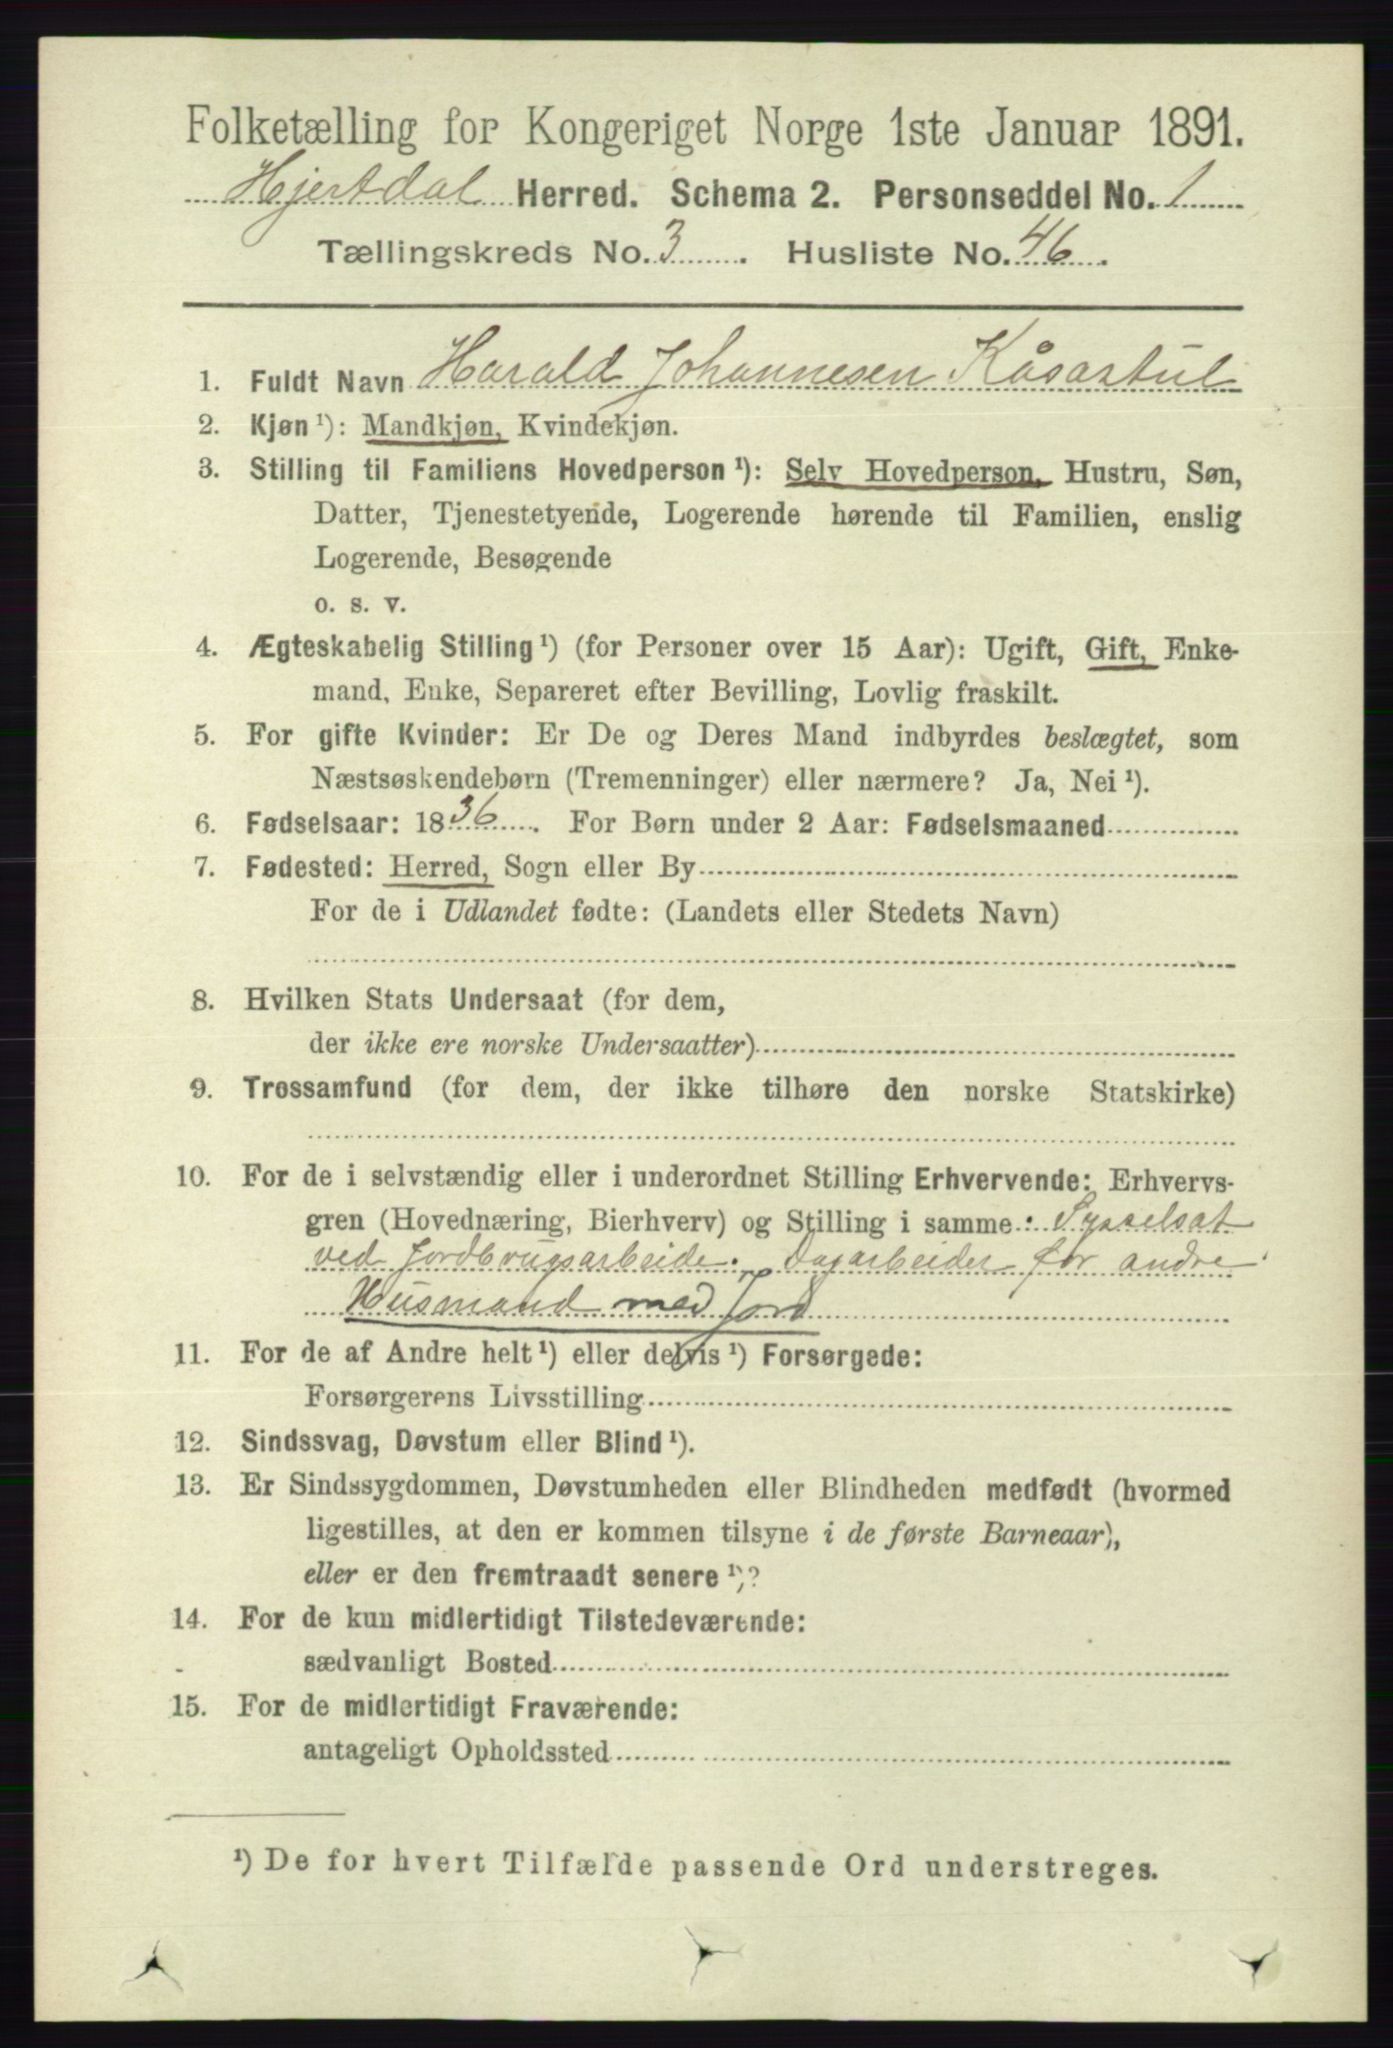 Folketælling for Kongeriget Norge 1ste Januar 1891.
Hjertdal Herred. Schema 2. Personseddel No. 1
Tællingskreds No. 3. Husliste No. 46.
1. Fuldt Navn Harald Johannesen Kåsastul
2. Kjøn ¹): Mandkjøn, Kvindekjøn.
3. Stilling til Familiens Hovedperson ¹): Selv Hovedperson, Hustru, Søn,
Datter, Tjenestetyende, Logerende hørende til Familien, enslig
Logerende, Besøgende
o. s. v.
4. Ægteskabelig Stilling ¹) (for Personer over 15 Aar): Ugift, Gift, Enke-
mand, Enke, Separeret efter Bevilling, Lovlig fraskilt.
5. For gifte Kvinder: Er De og Deres Mand indbyrdes beslægtet, som
Næstsøskendebørn (Tremenninger) eller nærmere? Ja, Nei ¹).
6. Fødselsaar: 1836. For Børn under 2 Aar: Fødselsmaaned
7. Fødested: Herred, Sogn eller By
For de i Udlandet fødte: (Landets eller Stedets Navn)
8. Hvilken Stats Undersaat (for dem,
der ikke ere norske Undersaatter)
9. Trossamfund (for dem, der ikke tilhøre den norske Statskirke)
10. For de i selvstændig eller i underordnet Stilling Erhvervende: Erhvervs-
gren (Hovednæring, Bierhverv) og Stilling i samme: Sysselsat
ved Jordbrugsarbeide. Dagarbeider for andre
Husmand med Jord
11. For de af Andre helt ¹) eller delvis ¹) Forsørgede:
Forsørgerens Livsstilling
12. Sindssvag, Døvstum eller Blind ¹).
13. Er Sindssygdommen, Døvstumheden eller Blindheden medfødt (hvormed
ligestilles, at den er kommen tilsyne i de første Barneaar),
eller er den fremtraadt senere ¹)?
14. For de kun midlertidigt Tilstedeværende:
sædvanligt Bosted
15. For de midlertidigt Fraværende:
antageligt Opholdssted
¹) De for hvert Tilfælde passende Ord understreges.